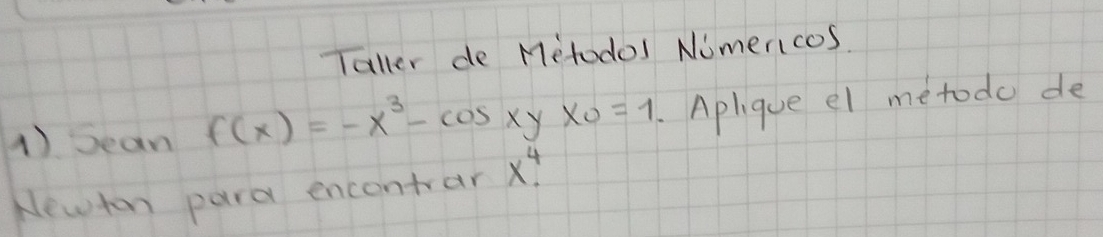 Taller de Métodos Númericos.
1). Sean f(x) = -x³ - cos xy x0 = 1. Aplique el método de
Newton para encontrar x⁴.